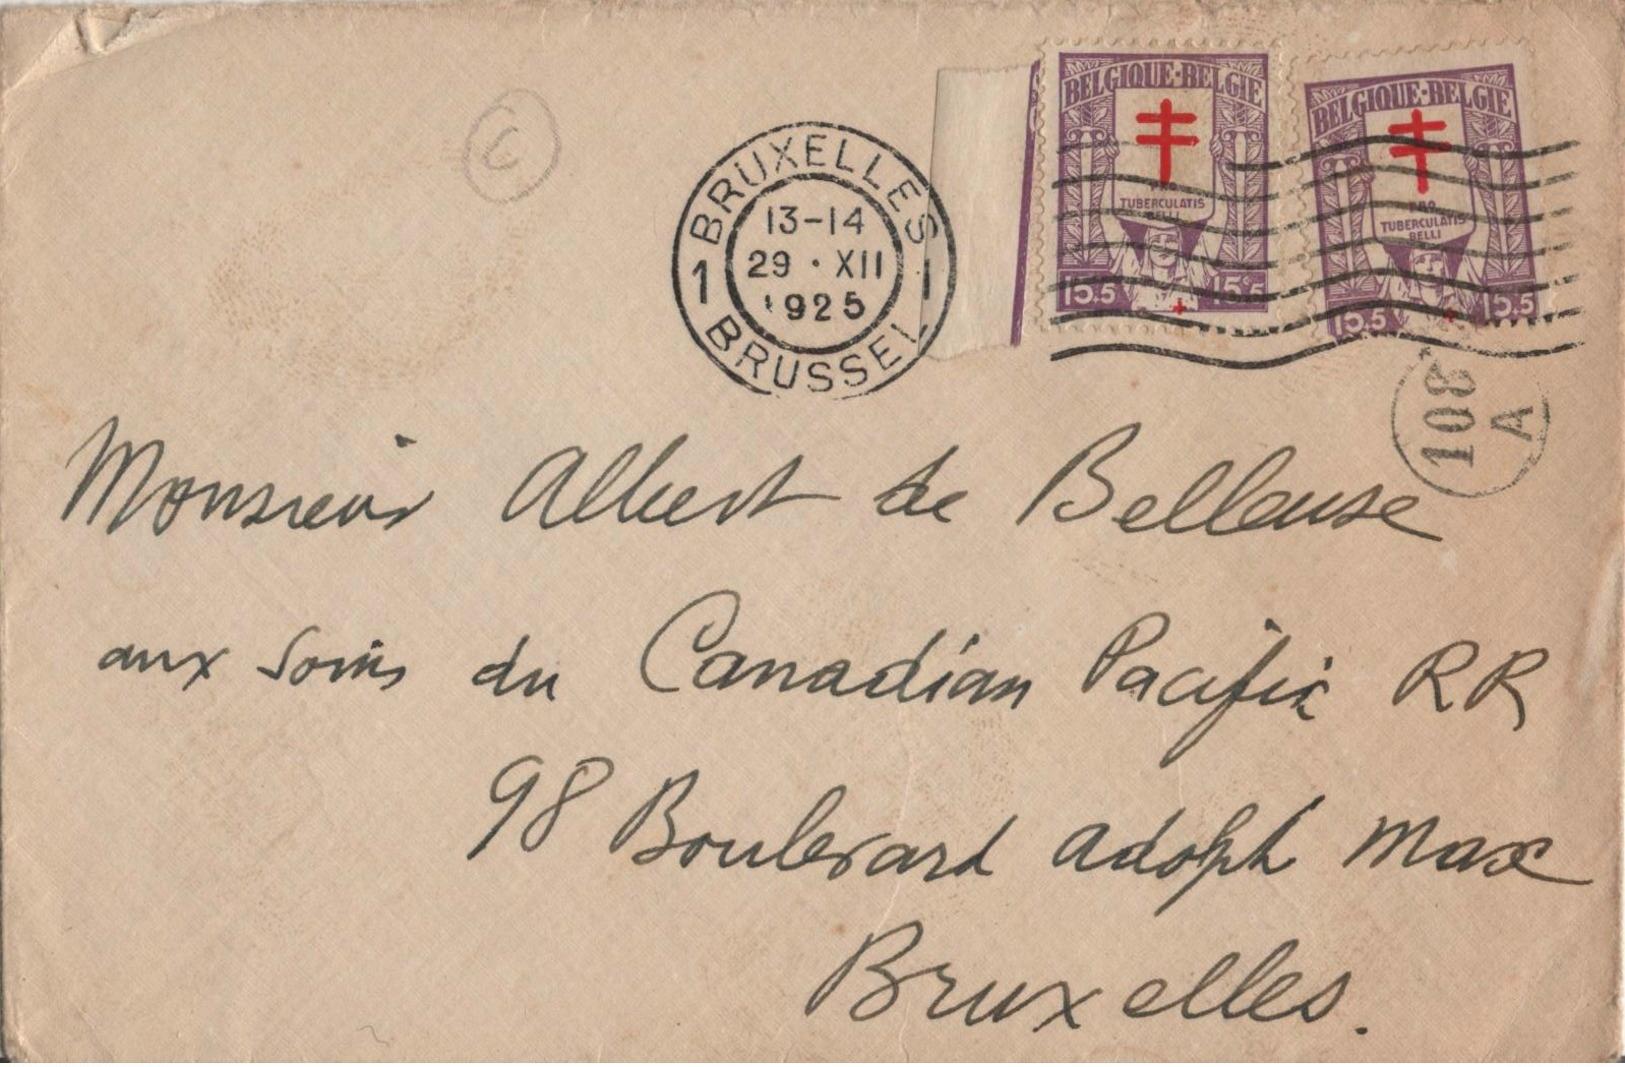 C
BRUXELLES
13-14
29 · XII
1925
1 1
BRUSSEL
BELGIQUE·BELGIE
PRO
TUBERCULATIS
BELLI
15.5 15.5
BELGIQUE·BELGIE
PRO
TUBERCULATIS
BELLI
15.5 15.5
108
A
Monsieur Albert de Belleuse
aux soins du Canadian Pacific RR
98 Boulevard Adolph Max
Bruxelles.